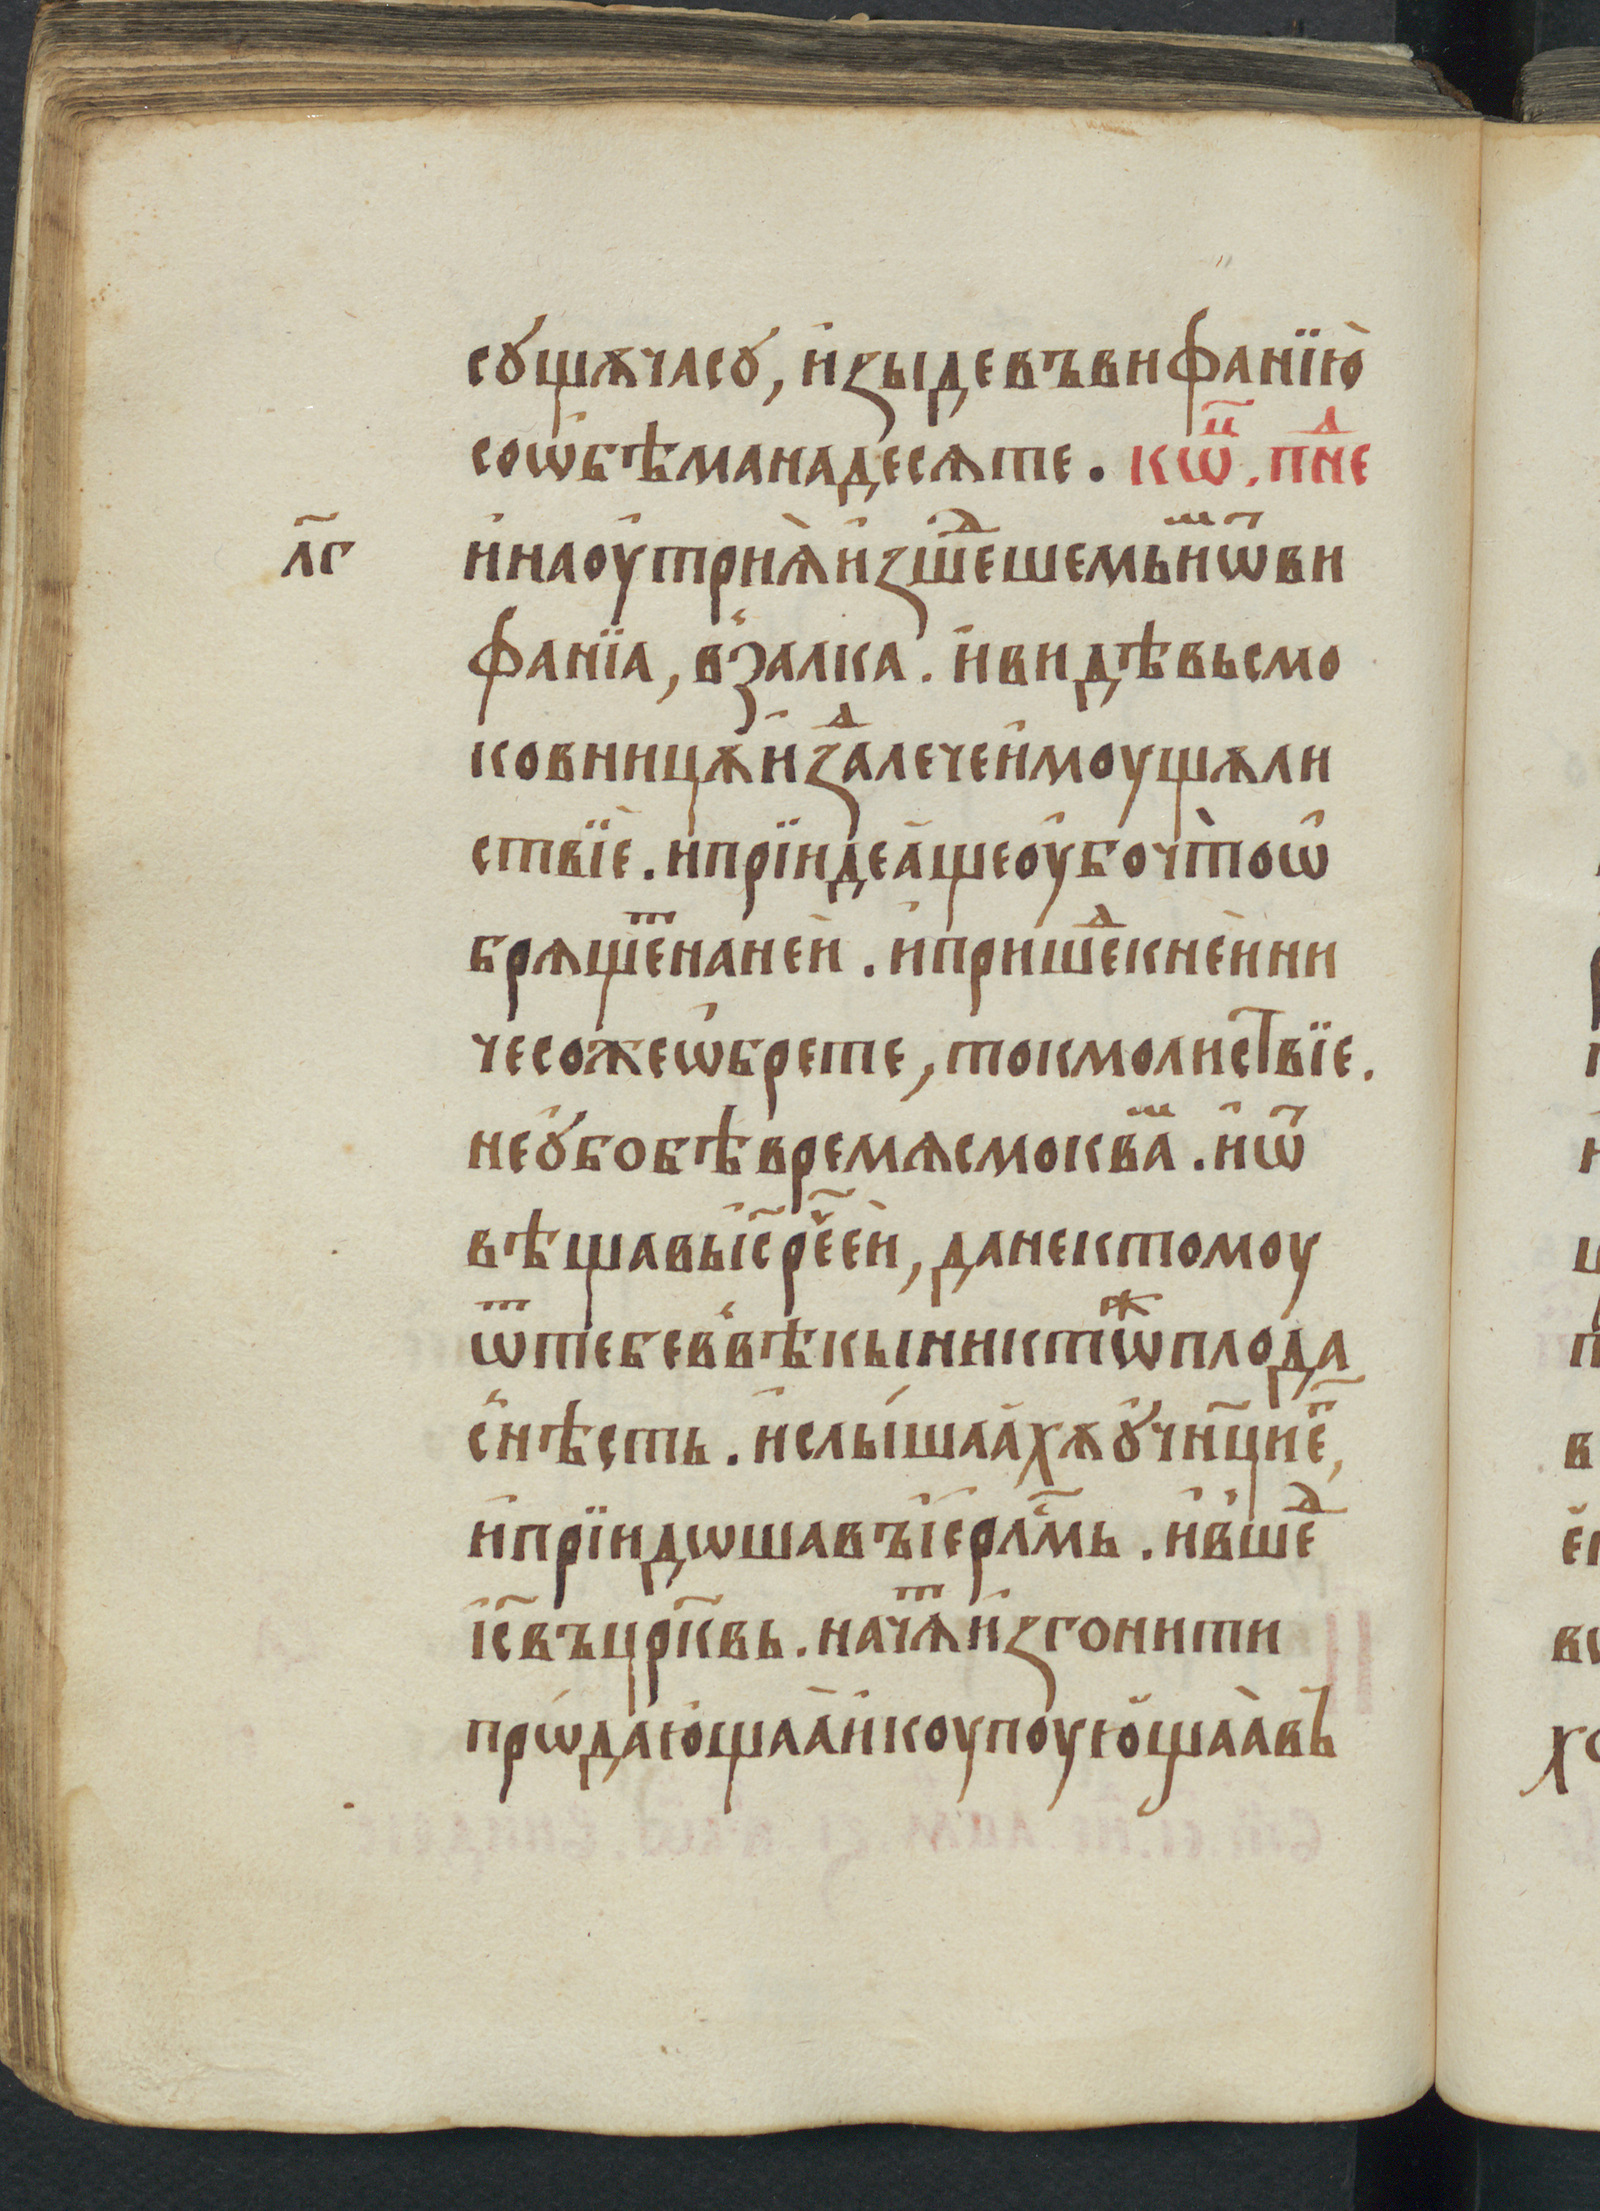 сꙋщѫ часꙋ, и҆зыде въ виѳанїю̀
со ѡ҆бѣманадесѧте. кѡⷰ҇. пⷣне
л҃г и҆ на оу҆трнѧ̀ и҆зшеⷣшемь и҆мⷨ ѿ ви
фанїа, въ҆залка. и҆ видѣвь смо
ковницѫ и҆здалеⷱче и҆моущѫ ли
ствїе. и прїиде а҆ще оу҆бо что̀ ѡ҆
брѧщеⷮ на неи. и҆ пришеⷣ к неи ни
чесоже ѡ҆брете, токмо листвїе.
не ꙋ҆бо бѣ времѧ смокваⷨ. и҆ ѿ
вѣщавь і҆с҃ рече҃ еи, да не к томоу
ѿ тебе в вѣкы никтоⷤ ѿ плода
снѣсть. и҆ слы́шаахѫ ꙋ҆чн҃ци е҆г҃,
и҆ прїидѡша въ і҆ерⷭ҇лмь. и҆ в҆шеⷣ
і҆с҃ въ цр҃квь. начѧⷮ и҆згонити
прѡ́даю҆щаа и҆ коупоую҆щаа въ